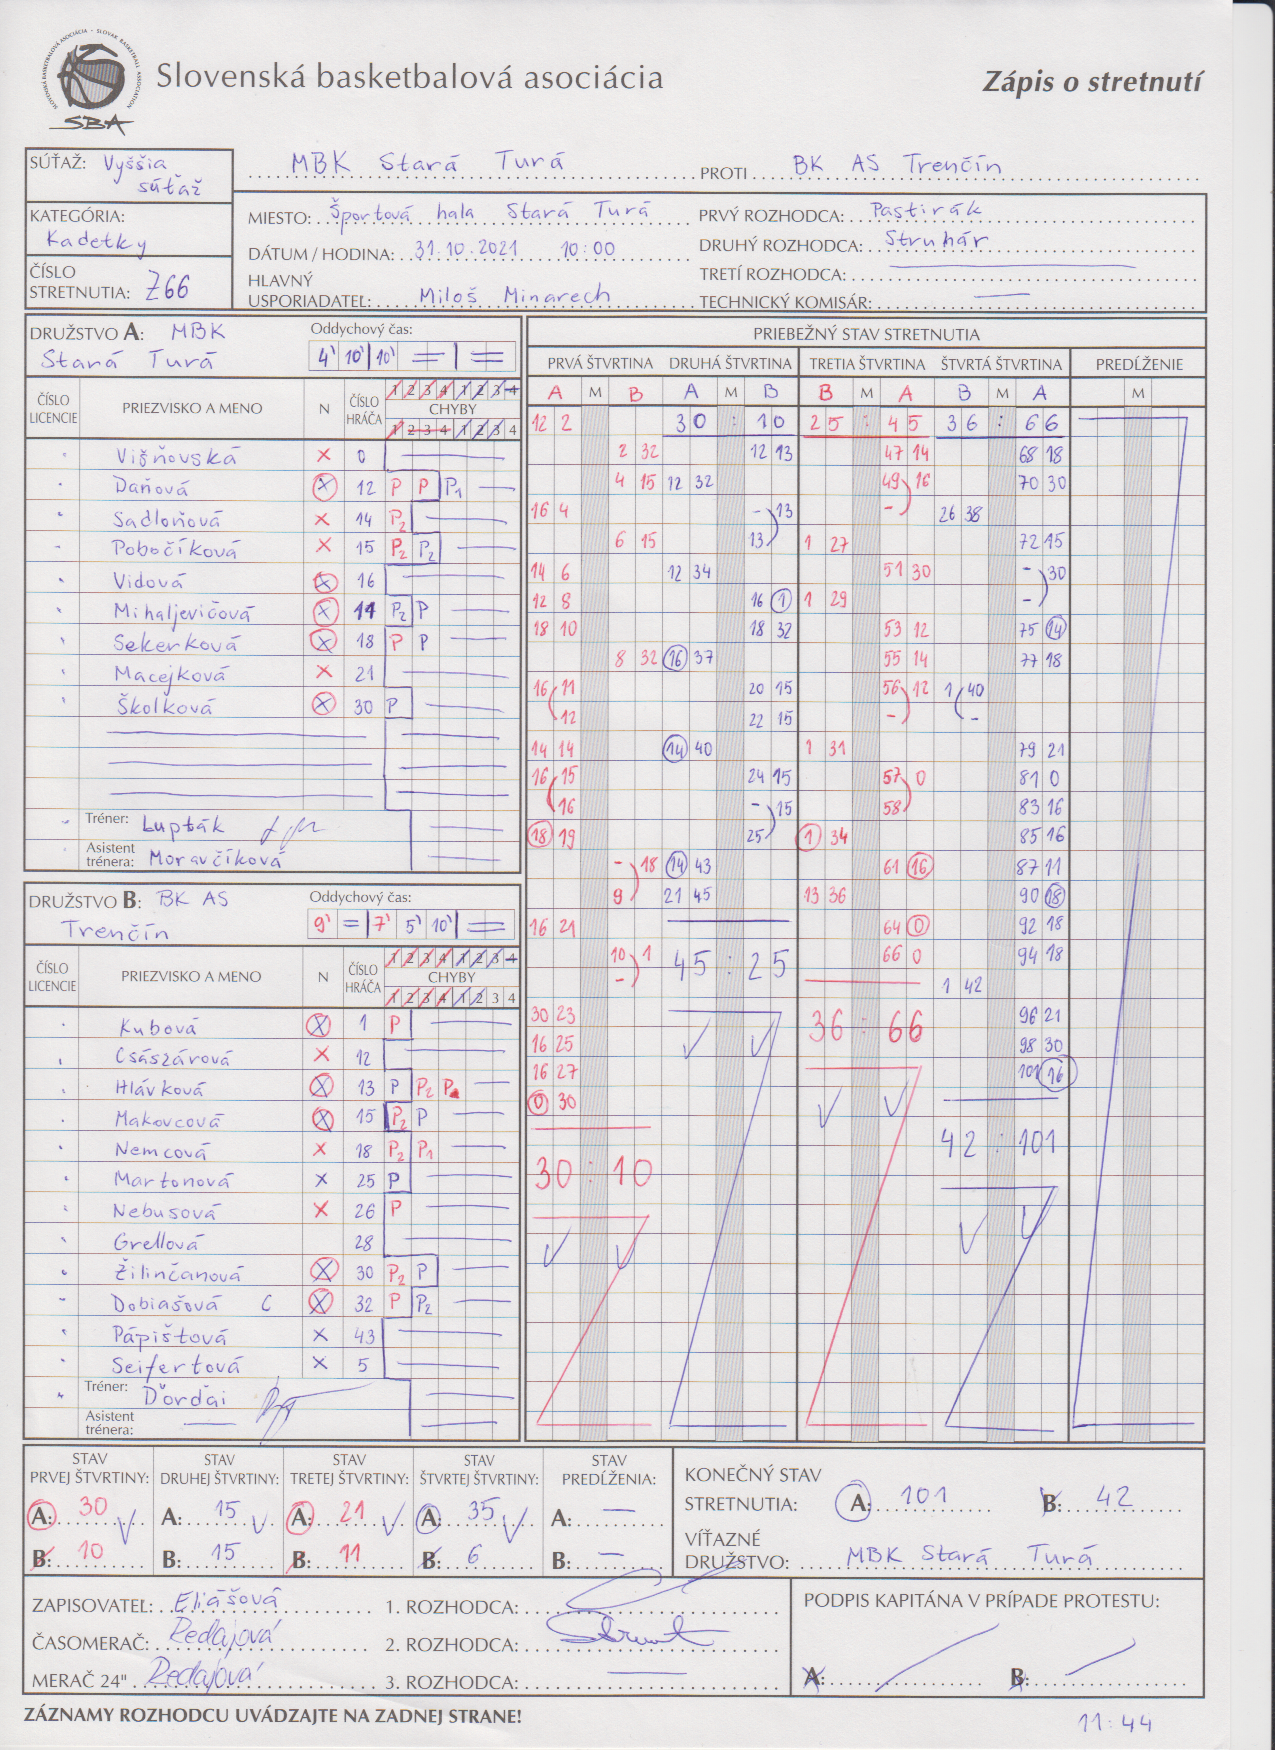 Slovenská basketbalová asociácia
Zápis o stretnutí
SLOVENSKÁ BASKETBALOVÁ ASOCIÁCIA - SLOVAK BASKETBALL ASSOCIATION
SBA
SÚŤAŽ: Vyššia súťaž
MBK Stará Turá PROTI BK AS Trenčín
KATEGÓRIA: Kadetky
ČÍSLO STRETNUTIA: Z66
MIESTO: Športová hala Stará Turá
DÁTUM / HODINA: 31.10.2021 10:00
HLAVNÝ USPORIADATEĽ: Miloš Minarech
PRVÝ ROZHODCA: Pastirák
DRUHÝ ROZHODCA: Struhár
TRETÍ ROZHODCA:
TECHNICKÝ KOMISÁR:
DRUŽSTVO A: MBK Stará Turá
Oddychový čas: 4' 10' 10'
ČÍSLO LICENCIE PRIEZVISKO A MENO N ČÍSLO HRÁČA CHYBY
1 2 3 4 1 2 3 4
1 2 3 4 1 2 3 4
Višňovská X 0
Daňová X 12 P P P1
Sadloňová X 14 P2
Pobočíková X 15 P2 P2
Vidová X 16
Mihaljevičová X 11 P2 P
Sekerková X 18 P P
Macejková X 21
Školková X 30 P
Tréner: Lupták
Asistent trénera: Moravčíková
DRUŽSTVO B: BK AS Trenčín
Oddychový čas: 9' = 7' 5' 10'
ČÍSLO LICENCIE PRIEZVISKO A MENO N ČÍSLO HRÁČA CHYBY
1 2 3 4 1 2 3 4
1 2 3 4 1 2 3 4
Kubová X 1 P
Császárová X 12
Hlávková X 13 P P2 P
Makovcová X 15 P2 P
Nemcová X 18 P2 P1
Martonová X 25 P
Nebusová X 26 P
Grellová 28
Žilinčanová X 30 P2 P
Dobiašová C X 32 P P2
Pápištová X 43
Seifertová X 5
Tréner: Ďorďai
Asistent trénera:
PRIEBEŽNÝ STAV STRETNUTIA
PRVÁ ŠTVRTINA DRUHÁ ŠTVRTINA TRETIA ŠTVRTINA ŠTVRTÁ ŠTVRTINA PREDĹŽENIE
A M B A M B B M A B M A M
12 2 30 : 10 25 : 45 36 : 66
2 32 12 13 47 14 68 18
4 15 12 32 49 16 70 30
16 4 - 13 - 26 38
6 15 13 1 27 72 15
14 6 12 34 51 30 - 30
12 8 16 1 1 29 -
18 10 18 32 53 12 75 14
8 32 16 37 55 14 77 18
16 11 20 15 56 12 1 40
12 22 15 - -
14 14 14 40 1 31 79 21
16 15 24 15 57 0 81 0
16 - 15 58 83 16
18 19 25 1 34 85 16
- 18 14 43 61 16 87 11
9 21 45 13 36 90 18
16 21 64 0 92 18
10 1 45 : 25 66 0 94 18
- 1 42
30 23 36 : 66 96 21
16 25 98 30
16 27 101 16
0 30
30 : 10 42 : 101
STAV PRVEJ ŠTVRTINY: A: 30 B: 10
STAV DRUHEJ ŠTVRTINY: A: 15 B: 15
STAV TRETEJ ŠTVRTINY: A: 21 B: 11
STAV ŠTVRTEJ ŠTVRTINY: A: 35 B: 6
STAV PREDĹŽENIA: A: — B: —
KONEČNÝ STAV STRETNUTIA: A: 101 B: 42
VÍŤAZNÉ DRUŽSTVO: MBK Stará Turá
ZAPISOVATEĽ: Eliášová
ČASOMERAČ: Redajová
MERAČ 24" Redajová
1. ROZHODCA:
2. ROZHODCA:
3. ROZHODCA:
PODPIS KAPITÁNA V PRÍPADE PROTESTU:
A: B:
ZÁZNAMY ROZHODCU UVÁDZAJTE NA ZADNEJ STRANE!
11:44